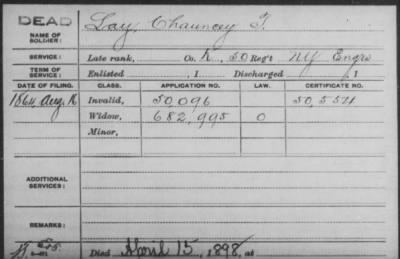 DEAD
NAME OF SOLDIER: Lay, Chauncey T.
SERVICE: Late rank, Co. K, 50 Reg't NY Engrs
TERM OF SERVICE: Enlisted , 1 Discharged , 1
DATE OF FILING. CLASS. APPLICATION NO. LAW. CERTIFICATE NO.
1864 Aug. Invalid, 50,096 50,551
Widow, 682,995 0
Minor,
ADDITIONAL SERVICES:
REMARKS:
Died April 15, 1898, at